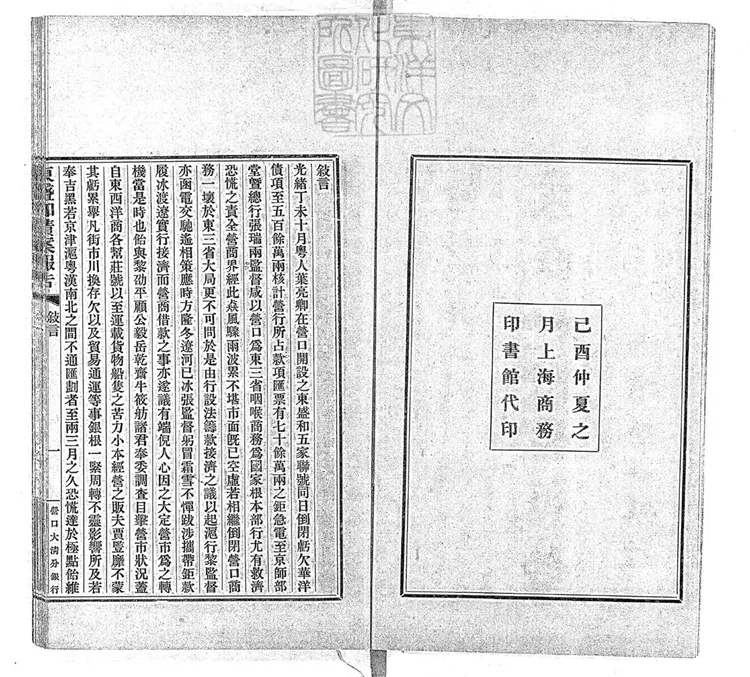 東洋文
化研究
所圖書
己酉仲夏之
月上海商務
印書館代印
敍言
光緒丁未十月粵人葉亮卿在營口開設之東盛和五家聯號同日倒閉虧欠華洋
債項至五百餘萬兩核計營行所占款項匯票有七十餘萬兩之鉅急電至京師部
堂暨總行張瑞兩監督咸以營口爲東三省咽喉商務爲國家根本部行尤有救濟
恐慌之責全營商界經此猋風驟雨波累不堪市面旣已空虛若相繼倒閉營口商
務一壞於東三省大局更不可問於是由行設法籌款接濟之議以起滬行黎監督
亦函電交馳遙相策應時方隆冬遼河已冰張監督躬冒霜雪不憚跋涉攜帶鉅款
履冰渡遼實行接濟而營商借款之事亦遂議有端倪人心因之大定營市爲之轉
機當是時也飴與黎劭平顧公毅岳乾齋牛筱舫諸君奉委調查目擊營市狀況蓋
自東西洋商各幫莊號以至運載貨物船隻之苦力小本經營之販夫賈豎靡不蒙
其虧累舉凡街市川換存欠以及貿易通運等事銀根一緊周轉不靈影響所及若
奉吉黑若京津滬粵漢南北之間不通匯劃者至兩三月之久恐慌達於極點飴維
東盛和債案報告 敍言 一 營口大清分銀行